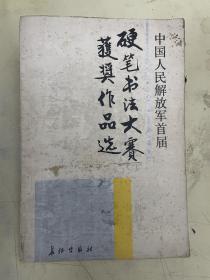 中国人民解放军首届
硬笔书法大赛
获奖作品选
长征出版社